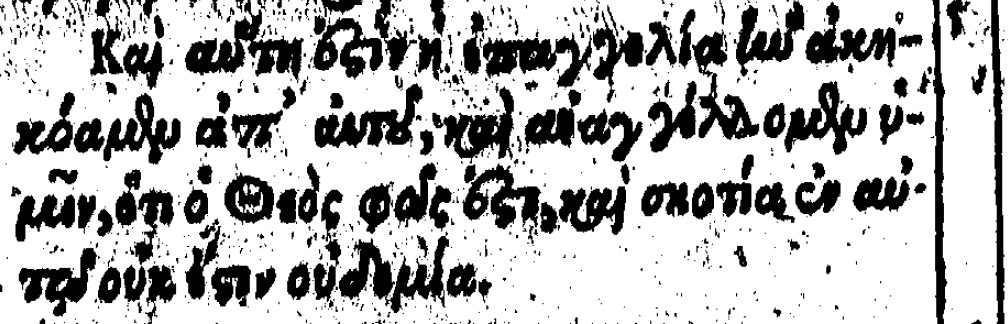 Καὶ αὕτη ἐστὶν ἡ ἐπαγγελία ἣν ἀκη-
κόαμεν ἀπ' αὐτοῦ, καὶ ἀναγγέλλομεν ὑ-
μῖν, ὅτι ὁ Θεὸς φῶς ἐστι, καὶ σκοτία ἐν αὐ-
τῷ οὐκ ἔστιν οὐδεμία.